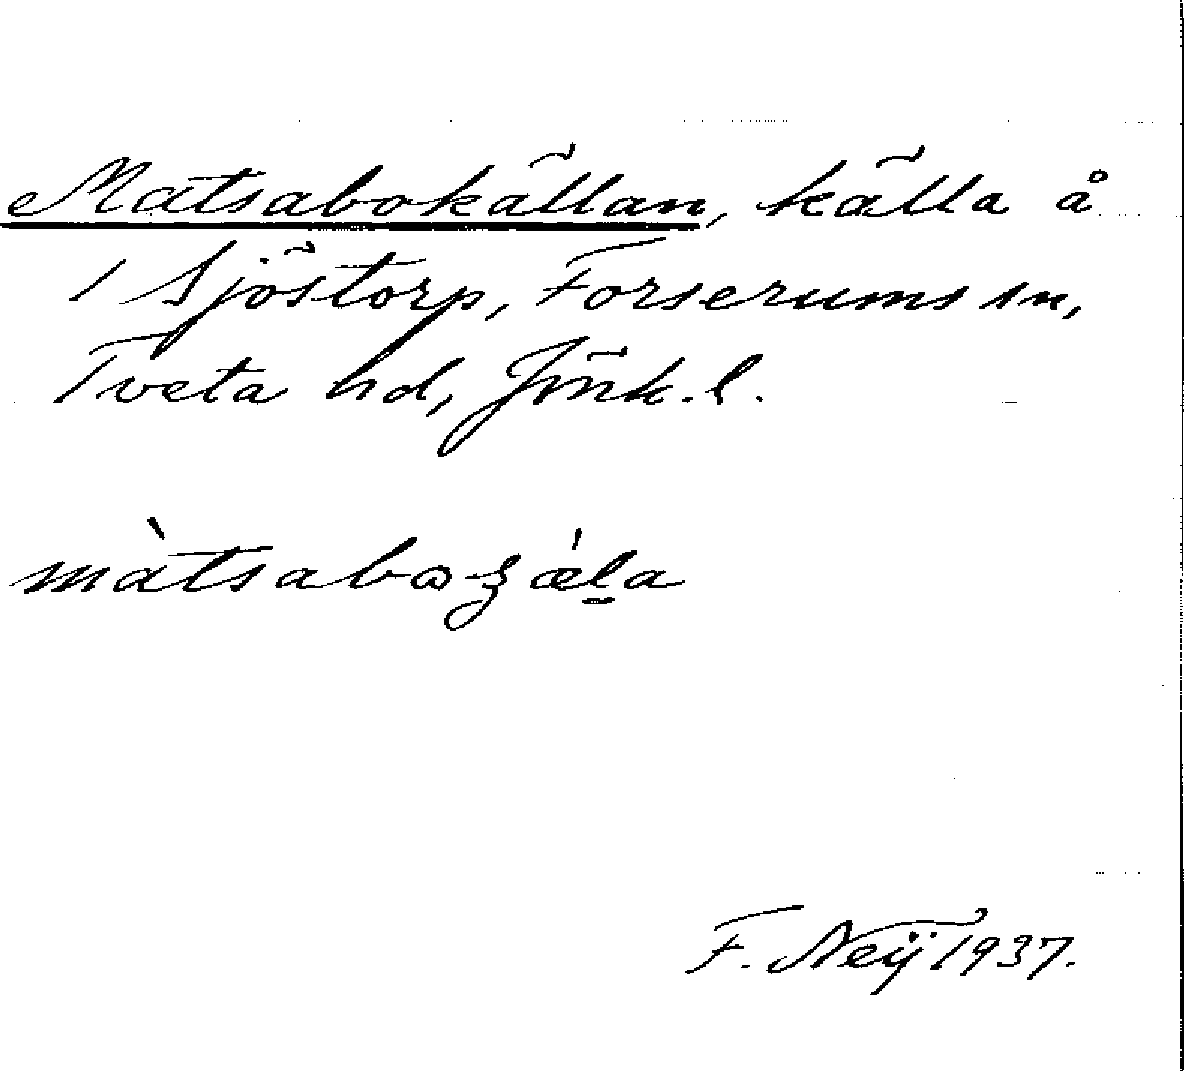 Matsabokällan, källa å
1 Sjöstorp, Forserums sn,
Tveta hd, Jönk. l.
màtsaboʒæ̀l̠a
F. Neÿ 1937.